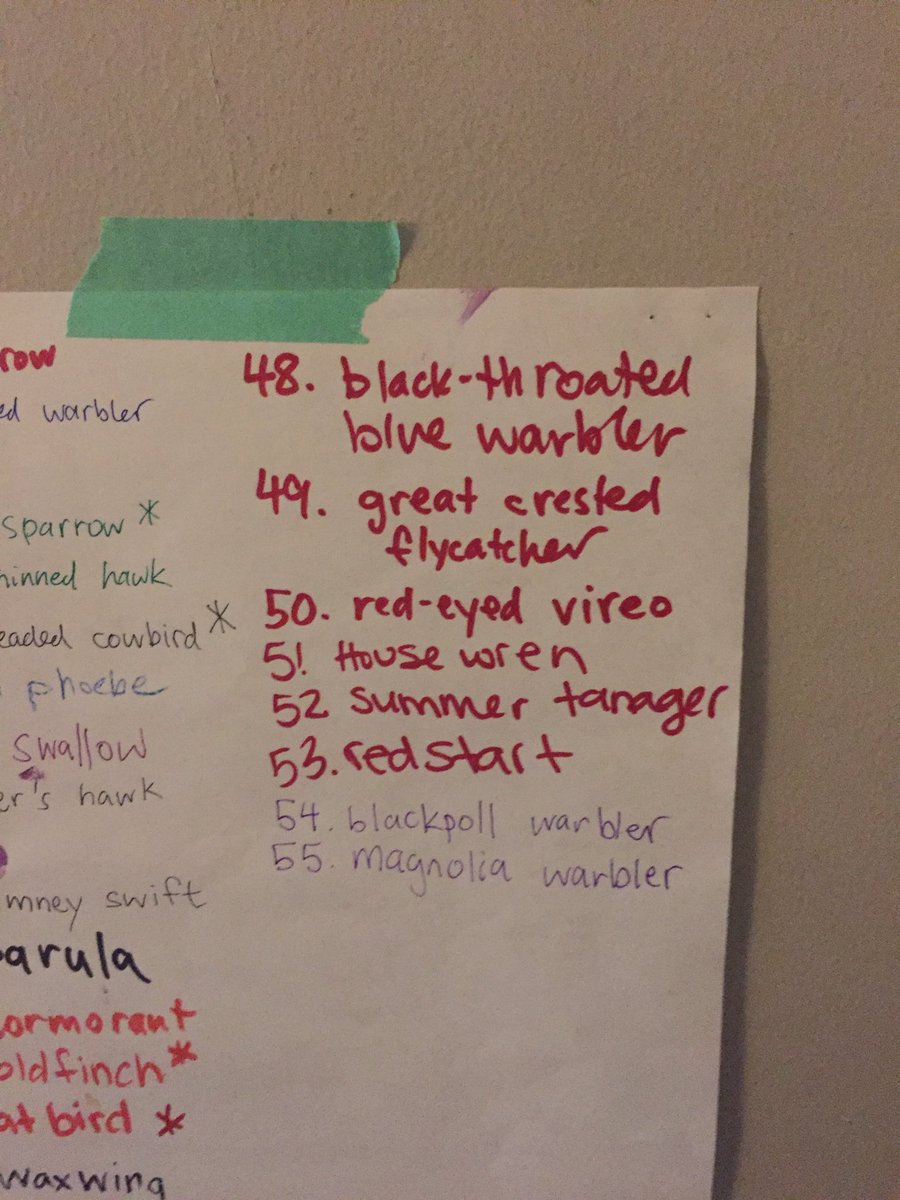 row
ed warbler
sparrow *
hinned hawk
eaded cowbird *
phoebe
swallow
er's hawk
mney swift
parula
ormorant
oldfinch *
atbird *
waxwing
48. black-throated
blue warbler
49. great crested
flycatcher
50. red-eyed vireo
51 House wren
52 summer tanager
53. redstart
54. blackpoll warbler
55. magnolia warbler